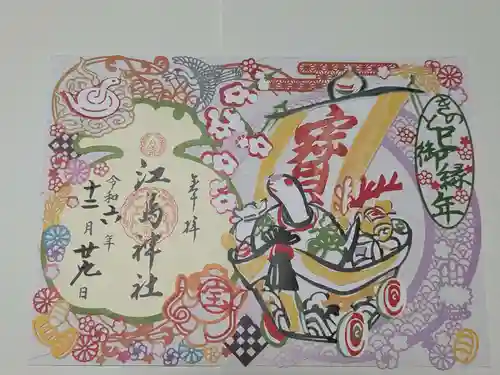 奉拝
江島神社
令和六年
十二月廿九日
寳
きのと巳御縁年